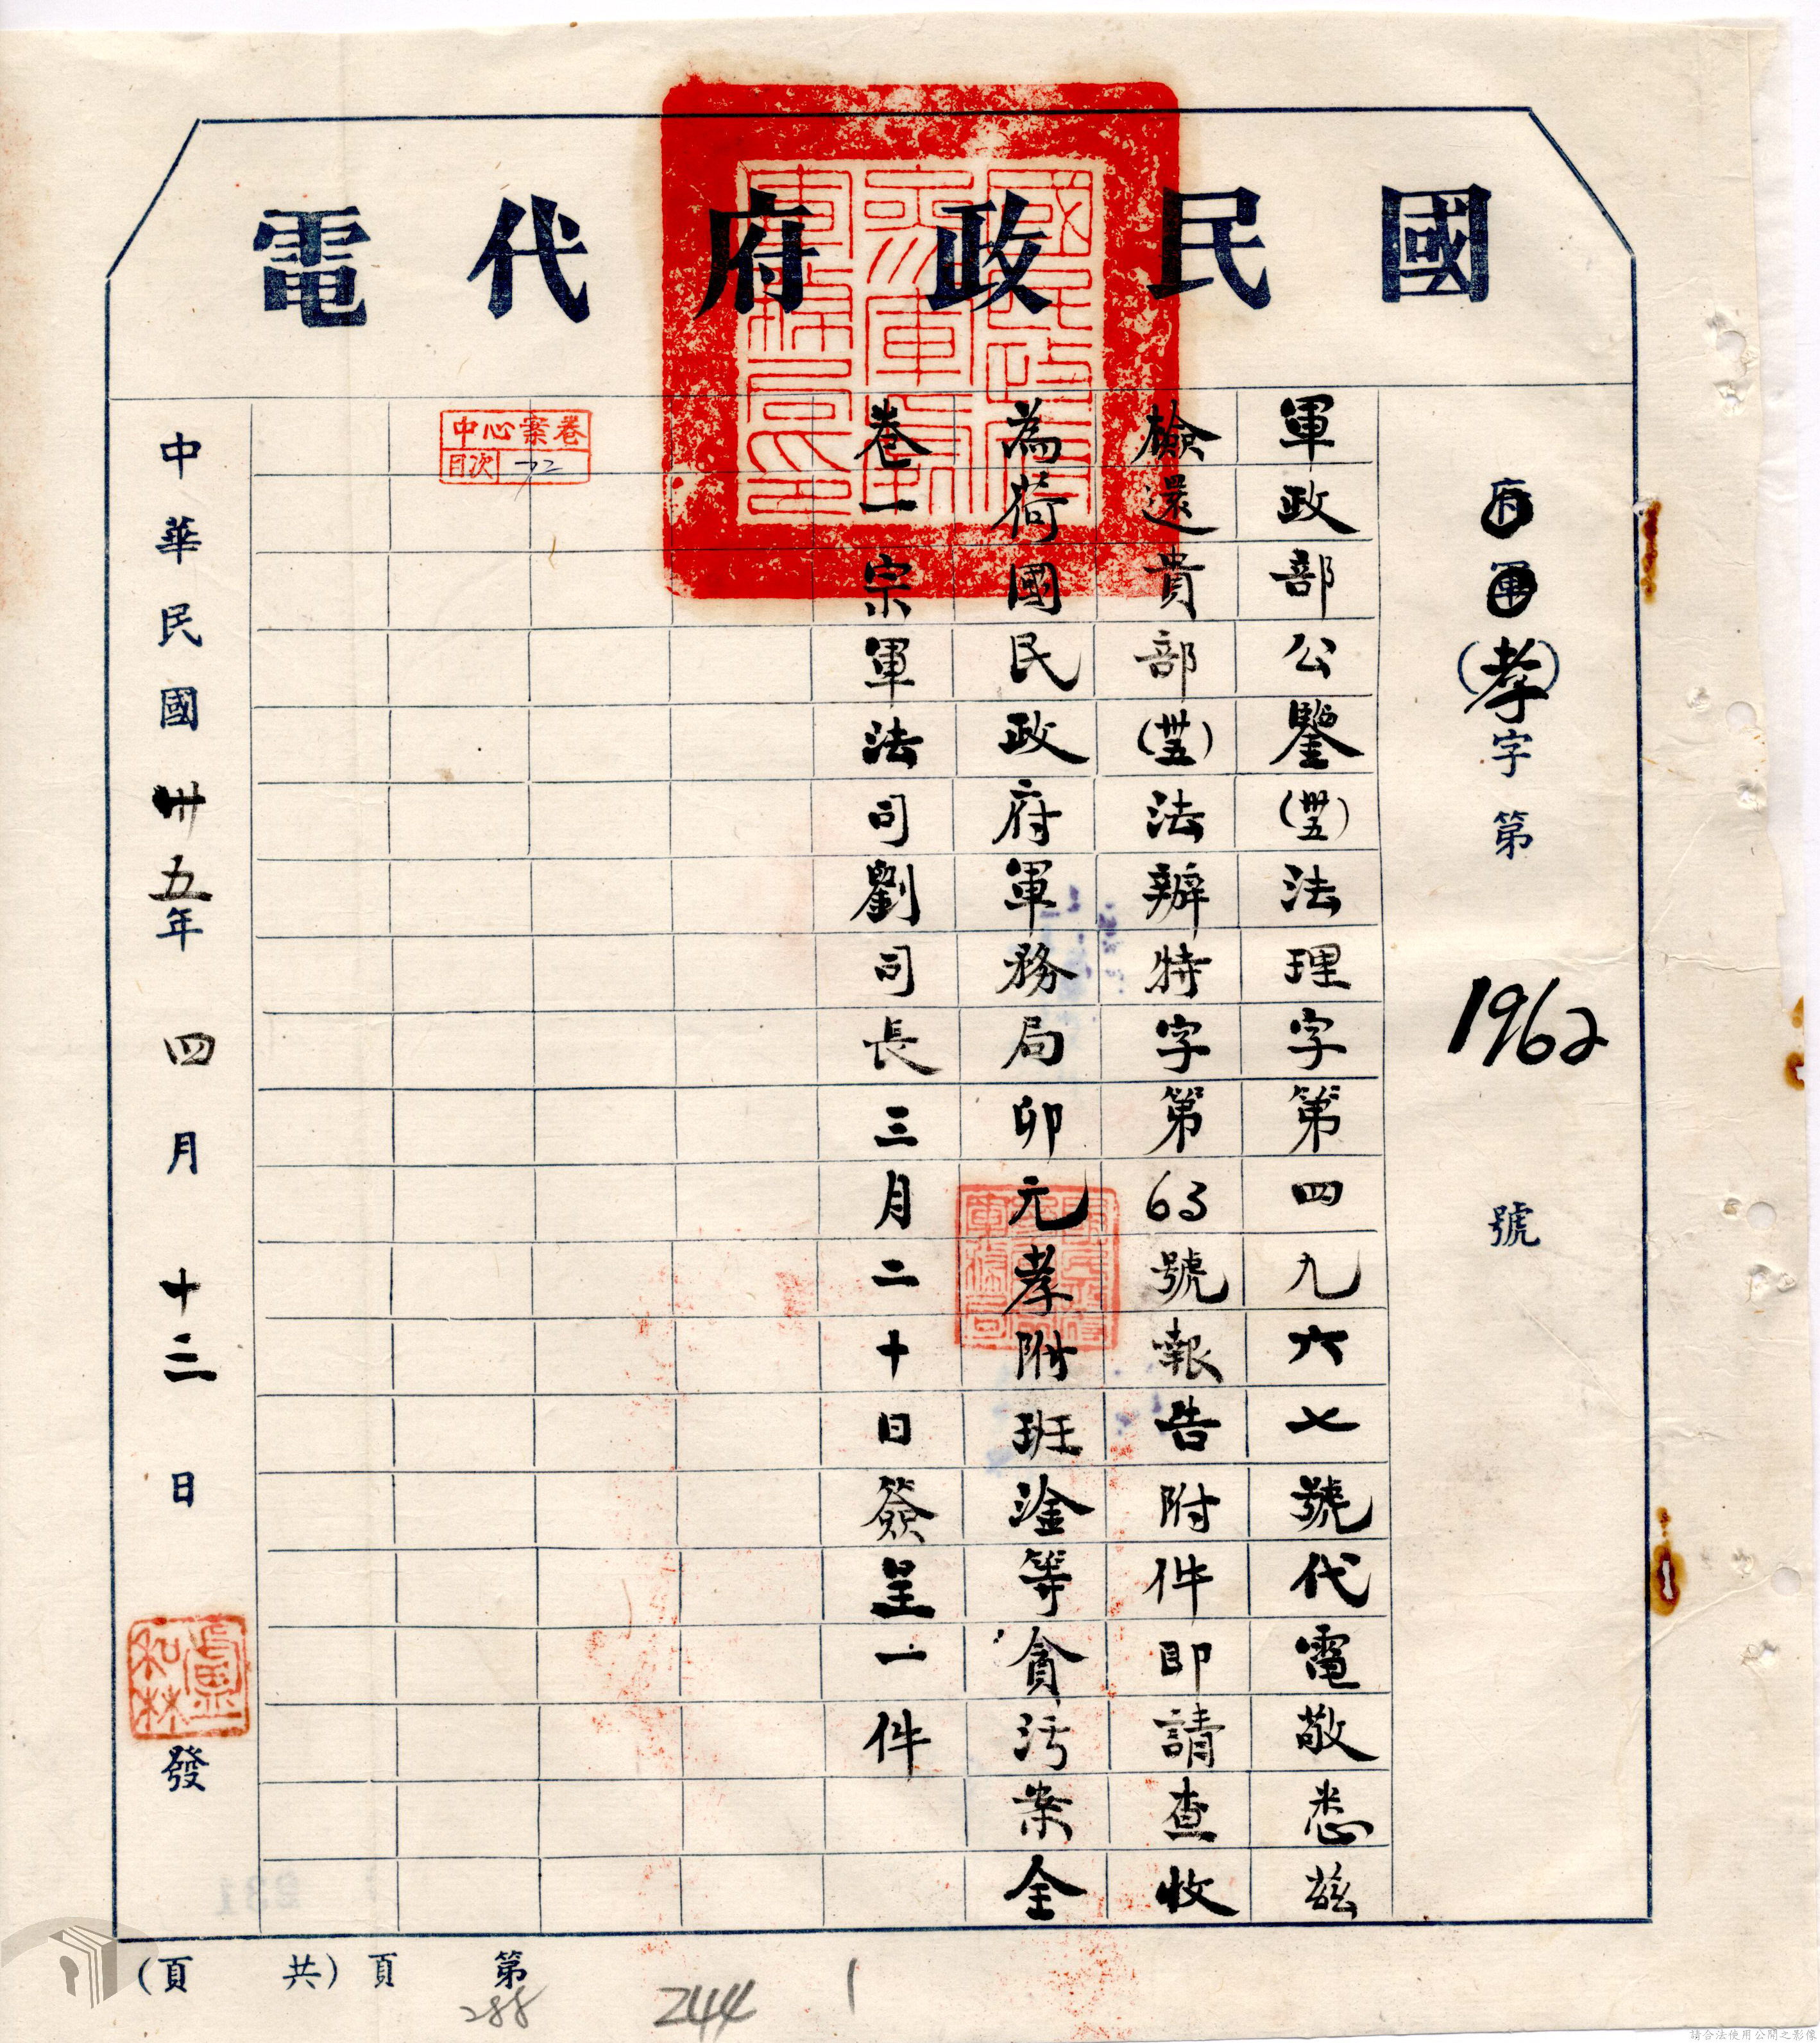 國民政府代電
府軍(孝)字第1962號
軍政部公鑒(卅五)法理字第四九六七號代電敬悉茲
檢還貴部(卅五)法辦特字第63號報告附件即請查收
為荷國民政府軍務局卯元孝附班淦等貪污案全
卷一宗軍法司劉司長三月二十日簽呈一件
中心案卷
目次
中華民國卅五年四月十三日發
第 頁(共 頁)
288
244
1
請合法使用公開之影像